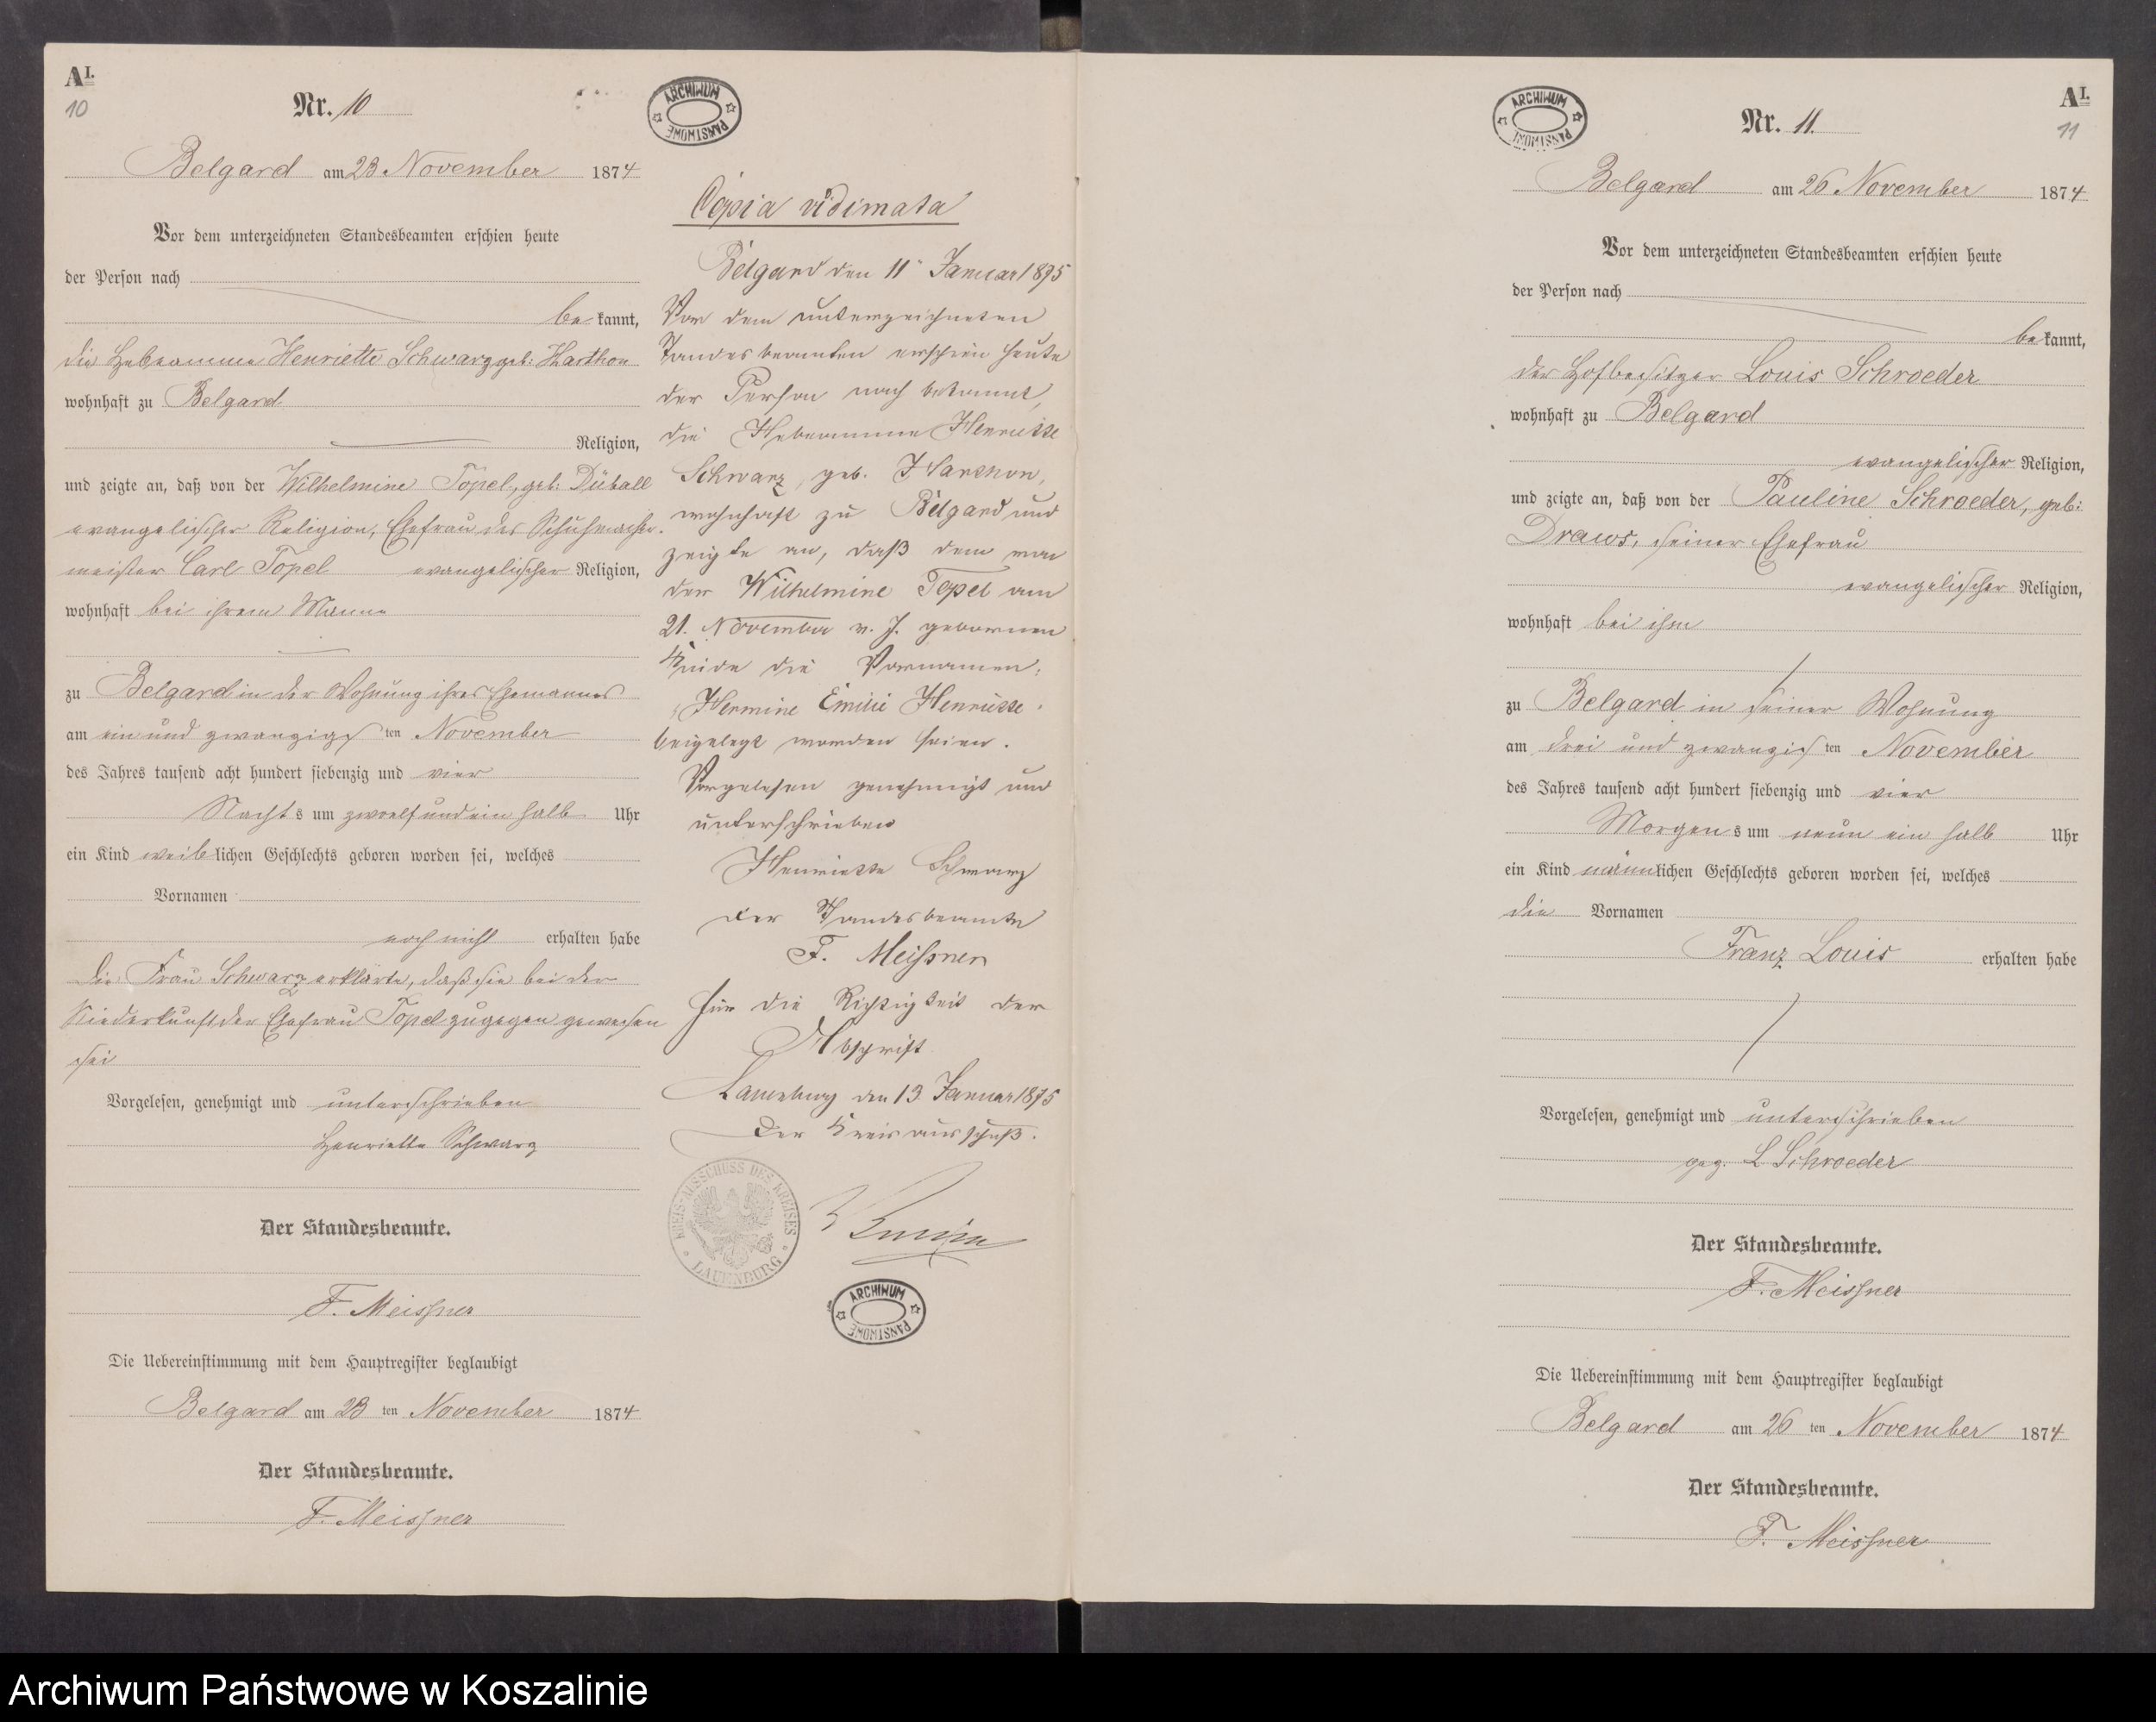 AI.
10
Nr. 10
Belgard am 23 November 1874
Vor dem unterzeichneten Standesbeamten erschien heute
der Person nach
be kannt,
die Hebeamme Henriette Schwarz geb: Harthon
wohnhaft zu Belgard
Religion,
und zeigte an, daß von der Wilhelmine Topel, geb: Düball
evangelischer Religion, Ehefrau des Schuhmacher-
meister Carl Topel evangelischer Religion,
wohnhaft bei ihrem Manne
zu Belgard in der Wohnung ihres Ehemannes
am ein und zwanzigs ten November
des Jahres tausend acht hundert siebenzig und vier
Nacht s um zwoelf und ein halb Uhr
ein Kind weib lichen Geschlechts geboren worden sei, welches
Vornamen
noch nicht erhalten habe
Die Frau Schwarz erklärte, daß sie bei der
Niederkunft der Ehefrau Topel zugegen gewesen
sei
Vorgelesen, genehmigt und unterschrieben
Henriette Schwarz
Der Standesbeamte.
F. Meissner
Die Uebereinstimmung mit dem Hauptregister beglaubigt
Belgard am 23 ten November 1874
Der Standesbeamte.
F. Meissner
ARCHIWUM PAŃSTWOWE
Copia vidimata
Belgard den 11 Januar 1875
Vor dem unterzeichneten
Standesbeamten erschien heute
der Person nach bekannt,
die Hebeamme Henriette
Schwarz, geb. Harthon,
wohnhaft zu Belgard und
zeigte an, daß dem von
der Wilhelmine Topel am
21. November v. J. gebornen
Kinde die Vornamen:
Hermine Emilie Henriette
beigelegt worden seien.
Vorgelesen genehmigt und
unterschrieben
Henriette Schwarz
Der Standesbeamte
F. Meissner
Für die Richtigkeit der
Abschrift
Lauenburg den 13 Januar 1875
Der Kreisausschuß.
KREIS-AUSSCHUSS DES KREISES LAUENBURG
ARCHIWUM PAŃSTWOWE
ARCHIWUM PAŃSTWOWE
AI.
11
Nr. 11.
Belgard am 26 November 1874
Vor dem unterzeichneten Standesbeamten erschien heute
der Person nach
be kannt,
der Hofbesitzer Louis Schroeder
wohnhaft zu Belgard
evangelischer Religion,
und zeigte an, daß von der Pauline Schroeder, geb:
Draws, seiner Ehefrau
evangelischer Religion,
wohnhaft bei ihm
zu Belgard in seiner Wohnung
am drei und zwanzigs ten November
des Jahres tausend acht hundert siebenzig und vier
Morgen s um neun ein halb Uhr
ein Kind männlichen Geschlechts geboren worden sei, welches
die Vornamen
Franz Louis erhalten habe
Vorgelesen, genehmigt und unterschrieben
gez. L Schroeder
Der Standesbeamte.
F. Meissner
Die Uebereinstimmung mit dem Hauptregister beglaubigt
Belgard am 26 ten November 1874
Der Standesbeamte.
F. Meissner
Archiwum Państwowe w Koszalinie